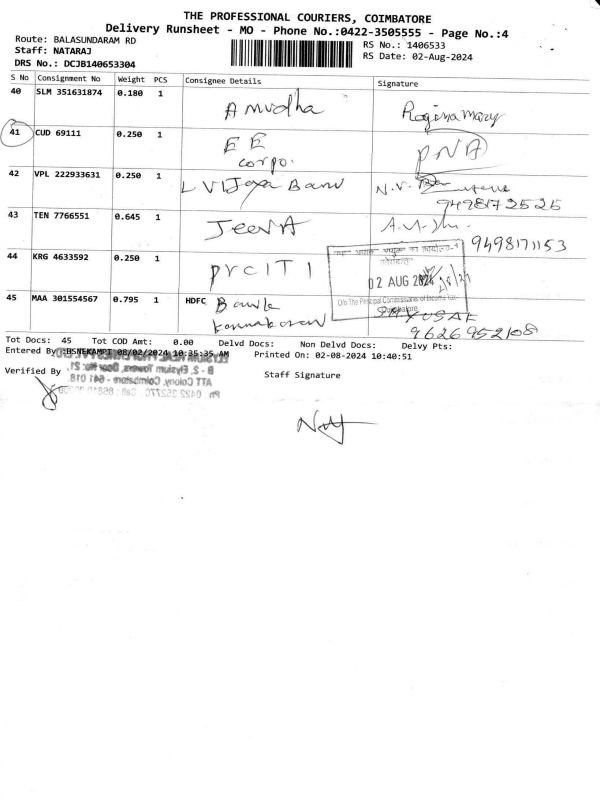 THE PROFESSIONAL COURIERS, COIMBATORE
Delivery Runsheet - MO - Phone No.:0422-3505555 - Page No.:4
Route: BALASUNDARAM RD
RS No.: 1406533
Staff: NATARAJ
RS Date: 02-Aug-2024
DRS No.: DCJB140653304
S No Consignment No Weight PCS Consignee Details Signature
40 SLM 351631874 0.180 1 Amudha Rogina mary
41 CUD 69111 0.250 1 EE
corpo.
42 VPL 222933631 0.250 1 L V Vijaya Banu N.V.
9498172525
43 TEN 7766551 0.645 1 JEEVA
9498171153
44 KRG 4633592 0.250 1 PrCIT 1
02 AUG 2024
O/o The Principal Commissioner of Income Tax-
Coimbatore
45 MAA 301554567 0.795 1 HDFC Bank
9626952108
Tot Docs: 45 Tot COD Amt: 0.00 Delvd Docs: Non Delvd Docs: Delvy Pts:
Entered By :BSNEKAMPT 08/02/2024 10:35:35 AM Printed On: 02-08-2024 10:40:51
B - 2, Elysium Towers, Door No: 21,
Verified By
ATT Colony, Coimbatore - 641 018.
Staff Signature